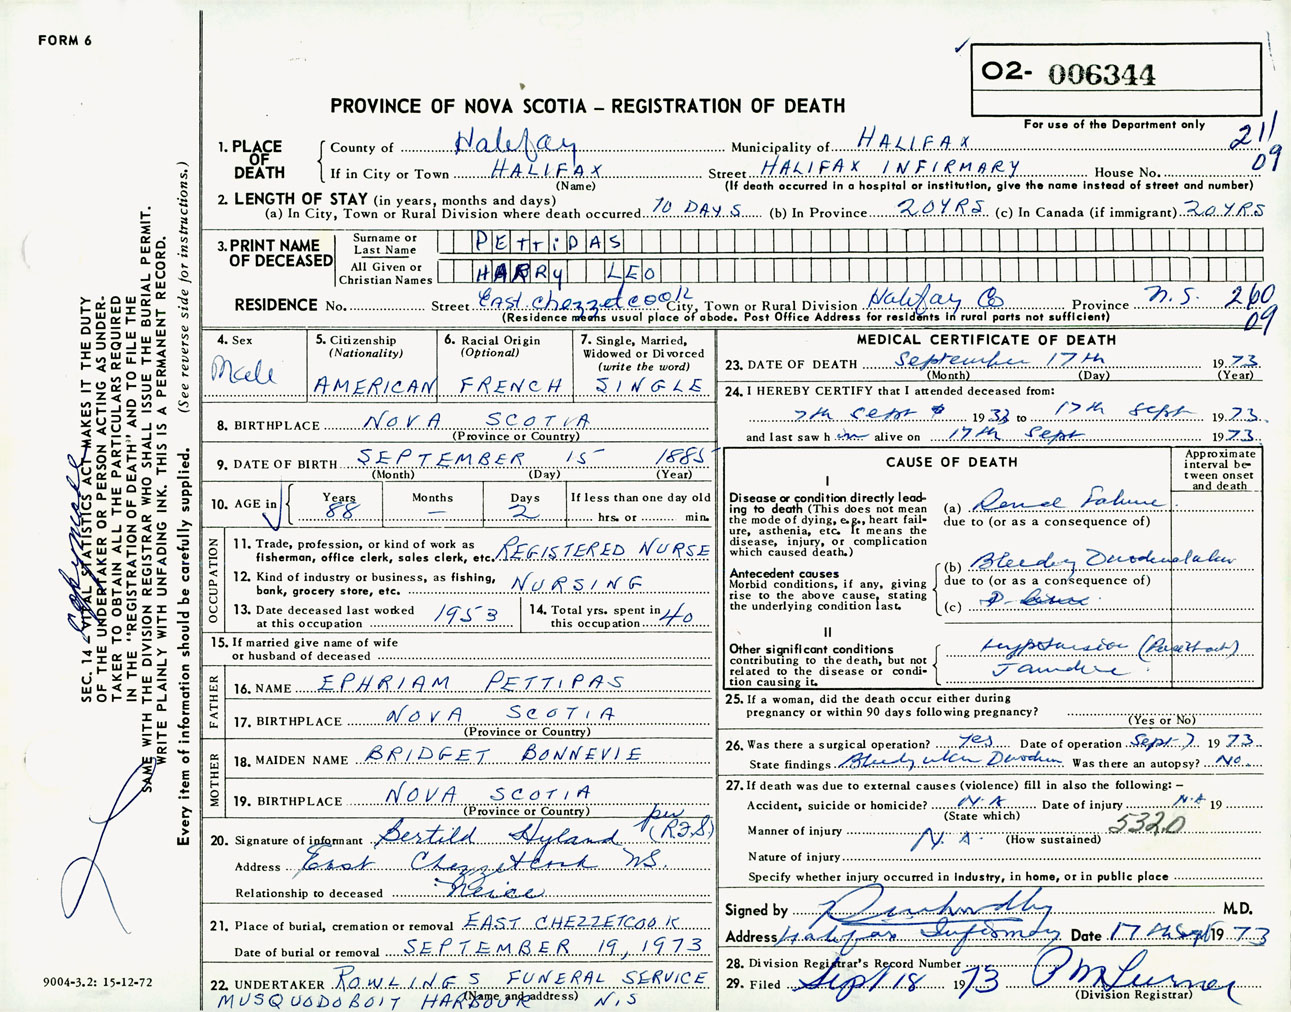 FORM 6
O2- 006344
PROVINCE OF NOVA SCOTIA – REGISTRATION OF DEATH
For use of the Department only
211
09
1. PLACE OF DEATH
County of Halifax Municipality of HALIFAX
If in City or Town HALIFAX Street HALIFAX INFIRMARY House No.
(Name) (If death occurred in a hospital or institution, give the name instead of street and number)
2. LENGTH OF STAY (in years, months and days)
(a) In City, Town or Rural Division where death occurred 10 DAYS (b) In Province 20 YRS (c) In Canada (if immigrant) 20 YRS
3. PRINT NAME OF DECEASED
Surname or Last Name PETTIPAS
All Given or Christian Names HARRY LEO
RESIDENCE No. Street East Chezzetcook City, Town or Rural Division Halifax Co Province N.S. 260
(Residence means usual place of abode. Post Office Address for residents in rural parts not sufficient) 09
4. Sex Male
5. Citizenship (Nationality) AMERICAN
6. Racial Origin (Optional) FRENCH
7. Single, Married, Widowed or Divorced (write the word) SINGLE
8. BIRTHPLACE NOVA SCOTIA
(Province or Country)
9. DATE OF BIRTH SEPTEMBER 15 1885
(Month) (Day) (Year)
10. AGE in Years 88 Months – Days 2 If less than one day old
hrs. or min.
OCCUPATION
11. Trade, profession, or kind of work as fisherman, office clerk, sales clerk, etc. REGISTERED NURSE
12. Kind of industry or business, as fishing, bank, grocery store, etc. NURSING
13. Date deceased last worked at this occupation 1953
14. Total yrs. spent in this occupation 40
15. If married give name of wife
or husband of deceased
FATHER
16. NAME EPHRIAM PETTIPAS
17. BIRTHPLACE NOVA SCOTIA
(Province or Country)
MOTHER
18. MAIDEN NAME BRIDGET BONNEVIE
19. BIRTHPLACE NOVA SCOTIA
(Province or Country)
20. Signature of informant Bertild Hyland per (RFS)
Address East Chezzetcook NS.
Relationship to deceased Neice
21. Place of burial, cremation or removal EAST CHEZZETCOOK
Date of burial or removal SEPTEMBER 19, 1973
22. UNDERTAKER ROWLINGS FUNERAL SERVICE
(Name and address)
MUSQUODOBOIT HARBOUR N.S
MEDICAL CERTIFICATE OF DEATH
23. DATE OF DEATH September 17th 1973
(Month) (Day) (Year)
24. I HEREBY CERTIFY that I attended deceased from:
7th Sept 1973 to 17th Sept 1973
and last saw him alive on 17th Sept 1973
CAUSE OF DEATH
Approximate interval between onset and death
I
Disease or condition directly leading to death (This does not mean the mode of dying, e.g., heart failure, asthenia, etc. It means the disease, injury, or complication which caused death.)
(a) Renal Failure
due to (or as a consequence of)
Antecedent causes
Morbid conditions, if any, giving rise to the above cause, stating the underlying condition last.
(b) Bleeding Duodenal ulcer
due to (or as a consequence of)
(c)
II
Other significant conditions contributing to the death, but not related to the disease or condition causing it.
Hypotension
Jaundice
25. If a woman, did the death occur either during
pregnancy or within 90 days following pregnancy?
(Yes or No)
26. Was there a surgical operation? Yes Date of operation Sept 7 1973
State findings Bleeding ulcer Duoden Was there an autopsy? No
27. If death was due to external causes (violence) fill in also the following: –
Accident, suicide or homicide? N.A Date of injury N.A 19
(State which)
5320
Manner of injury N.A. (How sustained)
Nature of injury
Specify whether injury occurred in industry, in home, or in public place
Signed by M.D.
Address Halifax Infirmary Date 17th Sept 1973
28. Division Registrar's Record Number
29. Filed Sept 18 1973
(Division Registrar)
SEC. 14 – VITAL STATISTICS ACT MAKES IT THE DUTY
OF THE UNDERTAKER OR PERSON ACTING AS UNDER-
TAKER TO OBTAIN ALL THE PARTICULARS REQUIRED
IN THE "REGISTRATION OF DEATH" AND TO FILE THE
SAME WITH THE DIVISION REGISTRAR WHO SHALL ISSUE THE BURIAL PERMIT.
WRITE PLAINLY WITH UNFADING INK. THIS IS A PERMANENT RECORD.
Every item of information should be carefully supplied. (See reverse side for instructions.)
9004-3.2: 15-12-72